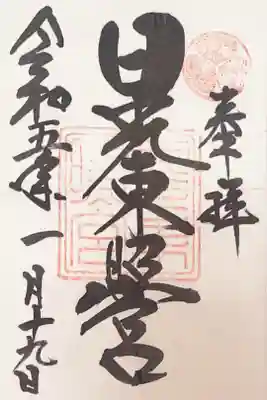 奉拝
日光東照宮
令和五年一月十九日